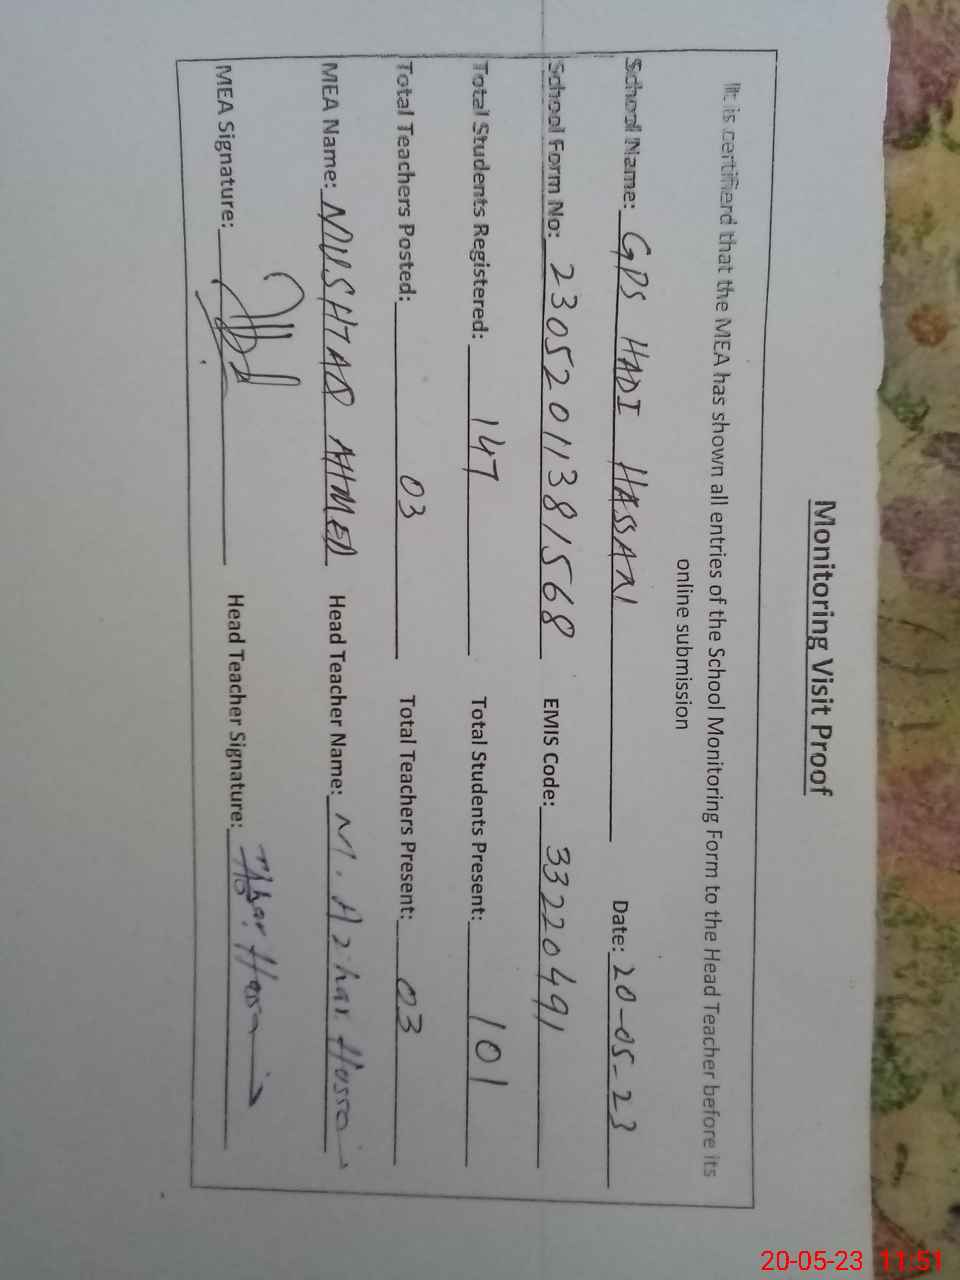 Monitoring Visit Proof
It is certified that the MEA has shown all entries of the School Monitoring Form to the Head Teacher before its
online submission
School Name: GPS HADI HASSAN Date: 20-05-23
School Form No: 2305201138 1568 EMIS Code: 33220491
Total Students Registered: 147 Total Students Present: 101
Total Teachers Posted: 03 Total Teachers Present: 03
MEA Name: MUSHTAQ AHMED Head Teacher Name: M. Azhar Hussain
MEA Signature: Head Teacher Signature: Azhar Hussain
20-05-23 11:51